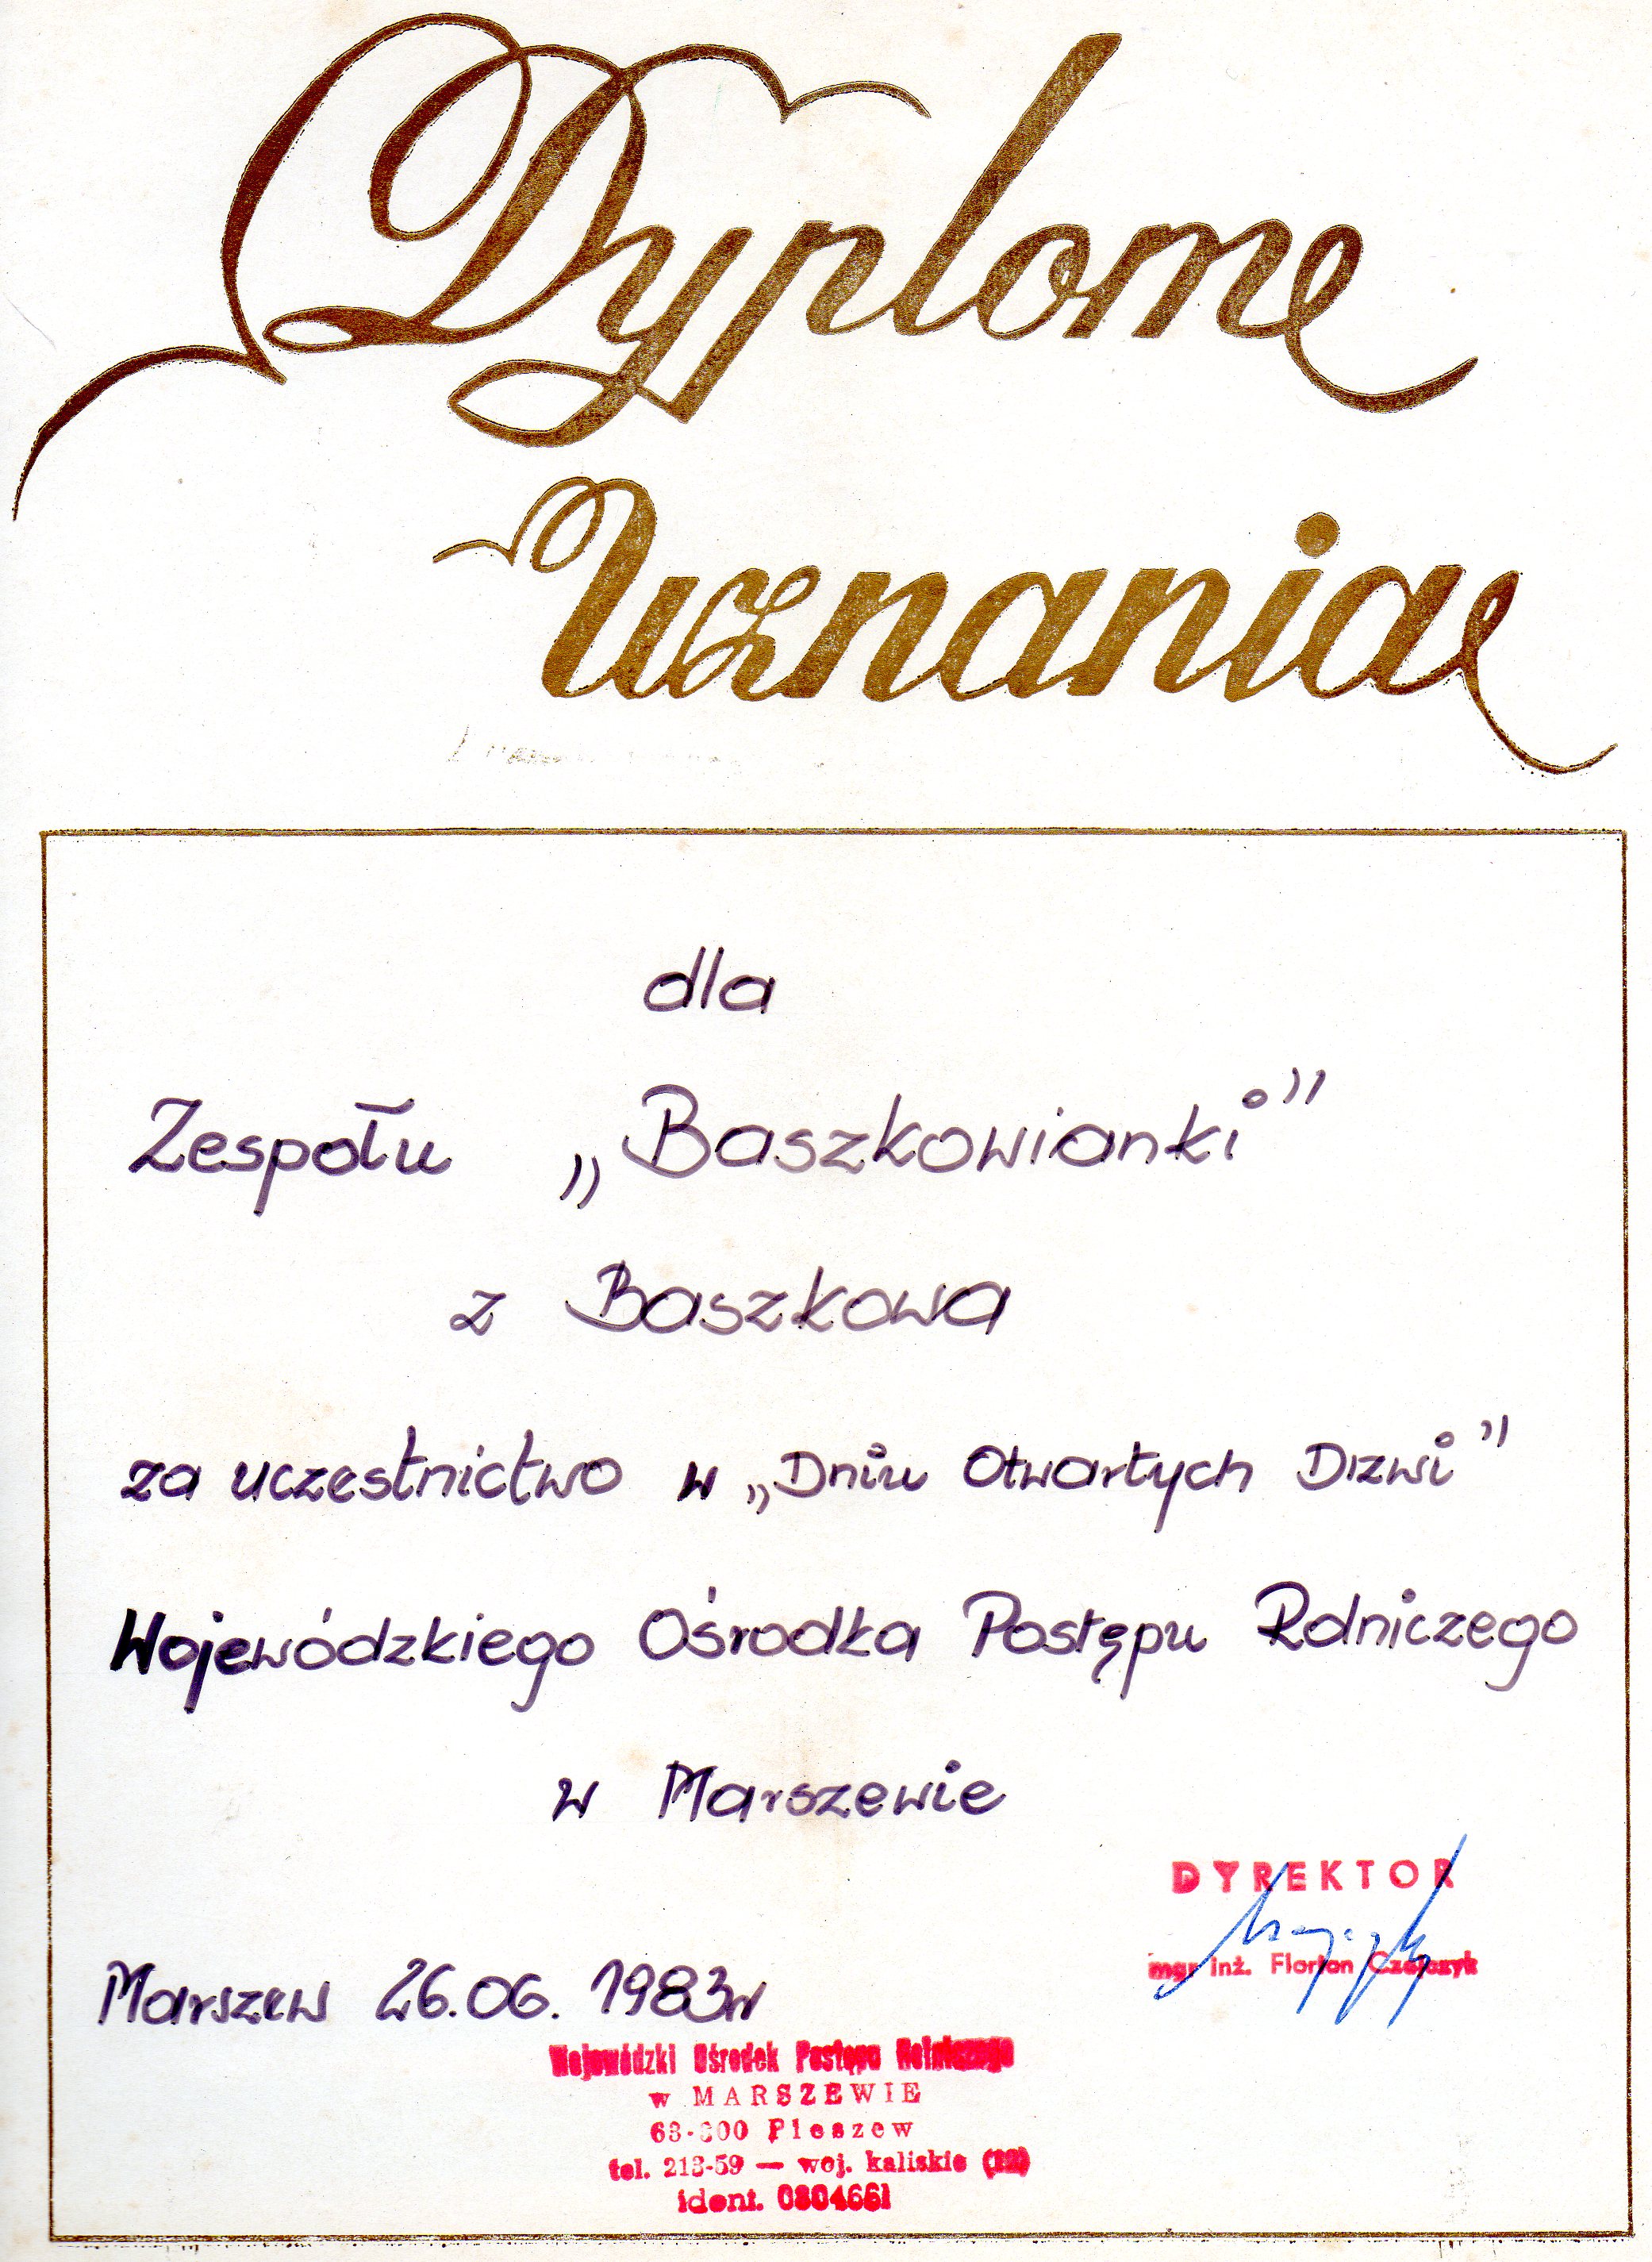 Dyplom
Uznania
dla
Zespołu „Baszkowianki”
z Baszkowa
za uczestnictwo w „Dniu Otwartych Drzwi”
Wojewódzkiego Ośrodka Postępu Rolniczego
w Marszewie
DYREKTOR
mgr inż. Florian
Marszew 26.06. 1983r
Wojewódzki Ośrodek Postępu Rolniczego
w MARSZEWIE
63-300 Pleszew
tel. 213-59 — woj. kaliskie
ident. 0804661